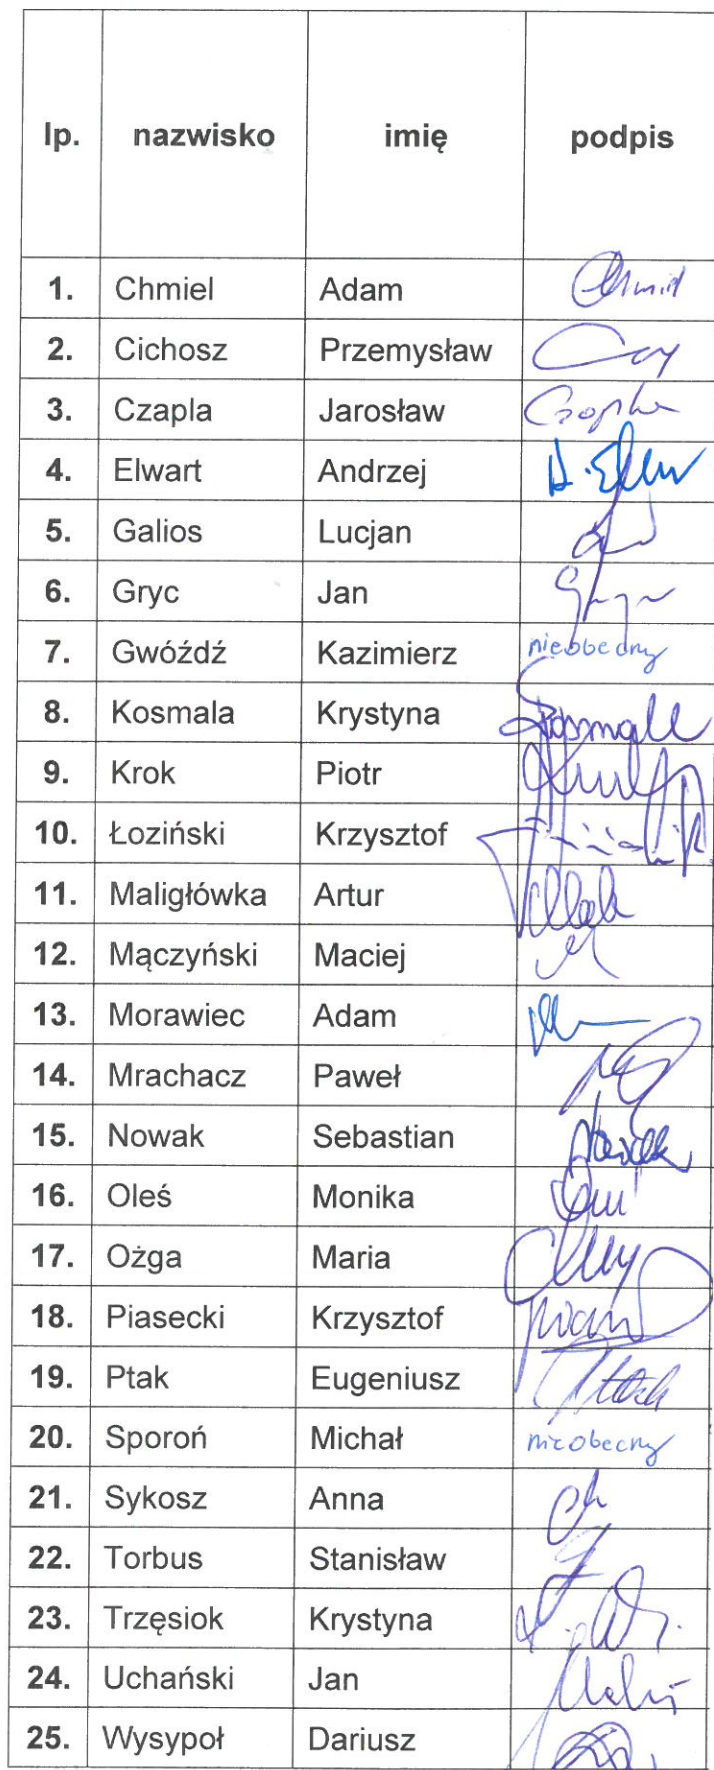 lp. nazwisko imię podpis
1. Chmiel Adam Chmiel
2. Cichosz Przemysław
3. Czapla Jarosław Czapla
4. Elwart Andrzej
5. Galios Lucjan
6. Gryc Jan
7. Gwóźdź Kazimierz nieobecny
8. Kosmala Krystyna Kosmala
9. Krok Piotr
10. Łoziński Krzysztof
11. Maligłówka Artur
12. Mączyński Maciej
13. Morawiec Adam
14. Mrachacz Paweł
15. Nowak Sebastian Nowak
16. Oleś Monika
17. Ożga Maria
18. Piasecki Krzysztof
19. Ptak Eugeniusz Ptak
20. Sporoń Michał nieobecny
21. Sykosz Anna
22. Torbus Stanisław
23. Trzęsiok Krystyna
24. Uchański Jan
25. Wysypoł Dariusz